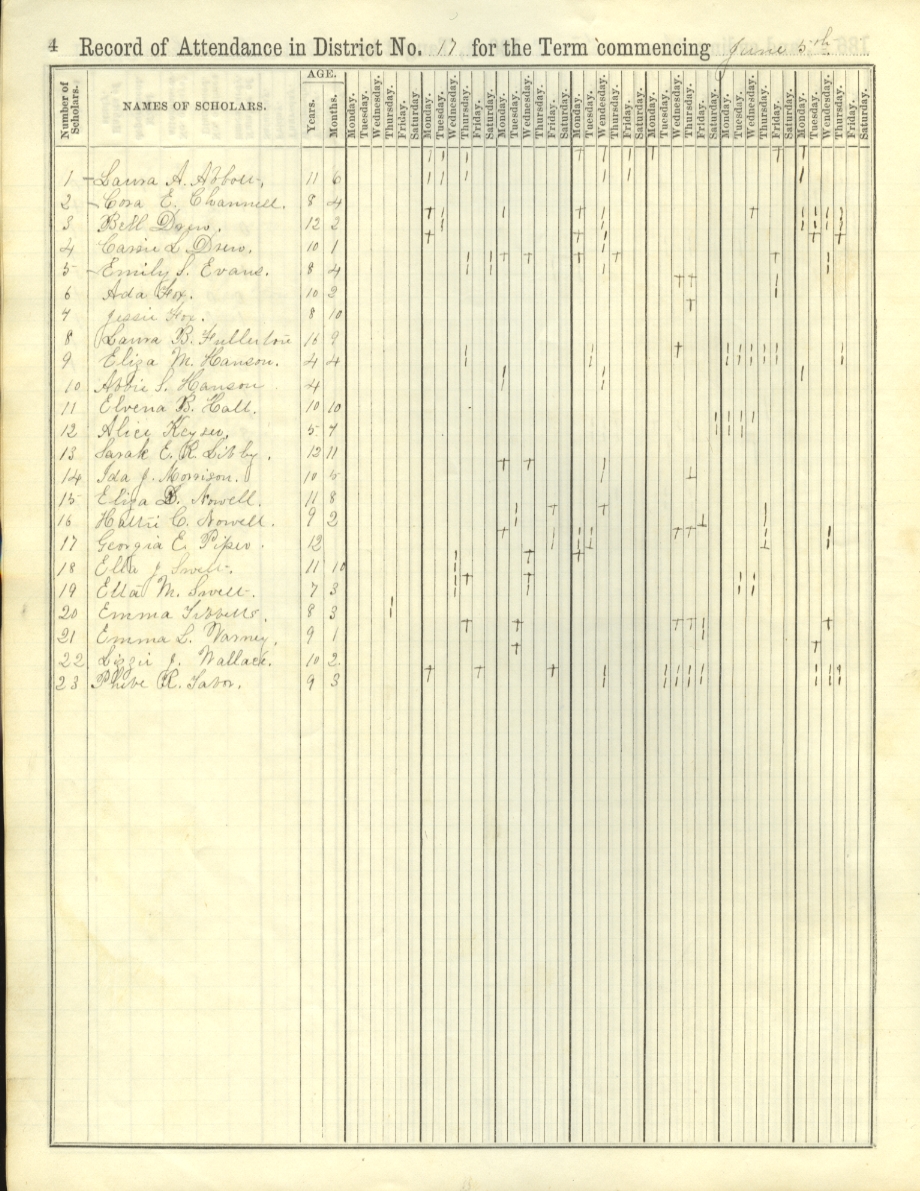 4 Record of Attendance in District No. 17 for the Term commencing June 5th
Number of Scholars. NAMES OF SCHOLARS. AGE. Years. Months. Monday. Tuesday. Wednesday. Thursday. Friday. Saturday Monday. Tuesday. Wednesday. Thursday. Friday. Saturday. Monday. Tuesday. Wednesday. Thursday. Friday. Saturday. Monday. Tuesday. Wednesday. Thursday. Friday. Saturday. Monday. Tuesday. Wednesday. Thursday. Friday. Saturday. Monday. Tuesday. Wednesday. Thursday. Friday. Saturday. Monday. Tuesday. Wednesday. Thursday. Friday. Saturday.
1 Laura A. Abbott, 11 6
2 Cora E. Channell. 8 4
3 Bell Drew. 12 2
4 Carrie L. Drew. 10 1
5 Emily S. Evans. 8 4
6 Ada Fox. 10 2
7 Jessie Fox. 8 10
8 Laura B. Fullerton 16 9
9 Eliza M. Hanson. 4 4
10 Abbie S. Hanson 4
11 Elvena B. Hall. 10 10
12 Alice Keyser. 5 7
13 Sarah E. R. Libby. 12 11
14 Ida J. Morrison. 10 5
15 Eliza D. Nowell. 11 8
16 Hattie C. Nowell. 9 2
17 Georgia E. Piper. 12
18 Ella J. Swett. 11 10
19 Etta M. Swett. 7 3
20 Emma Tibbetts. 8 3
21 Emma L. Varney. 9 1
22 Lizzie J. Wallace. 10 2.
23 Phebe R. Tabor. 9 3